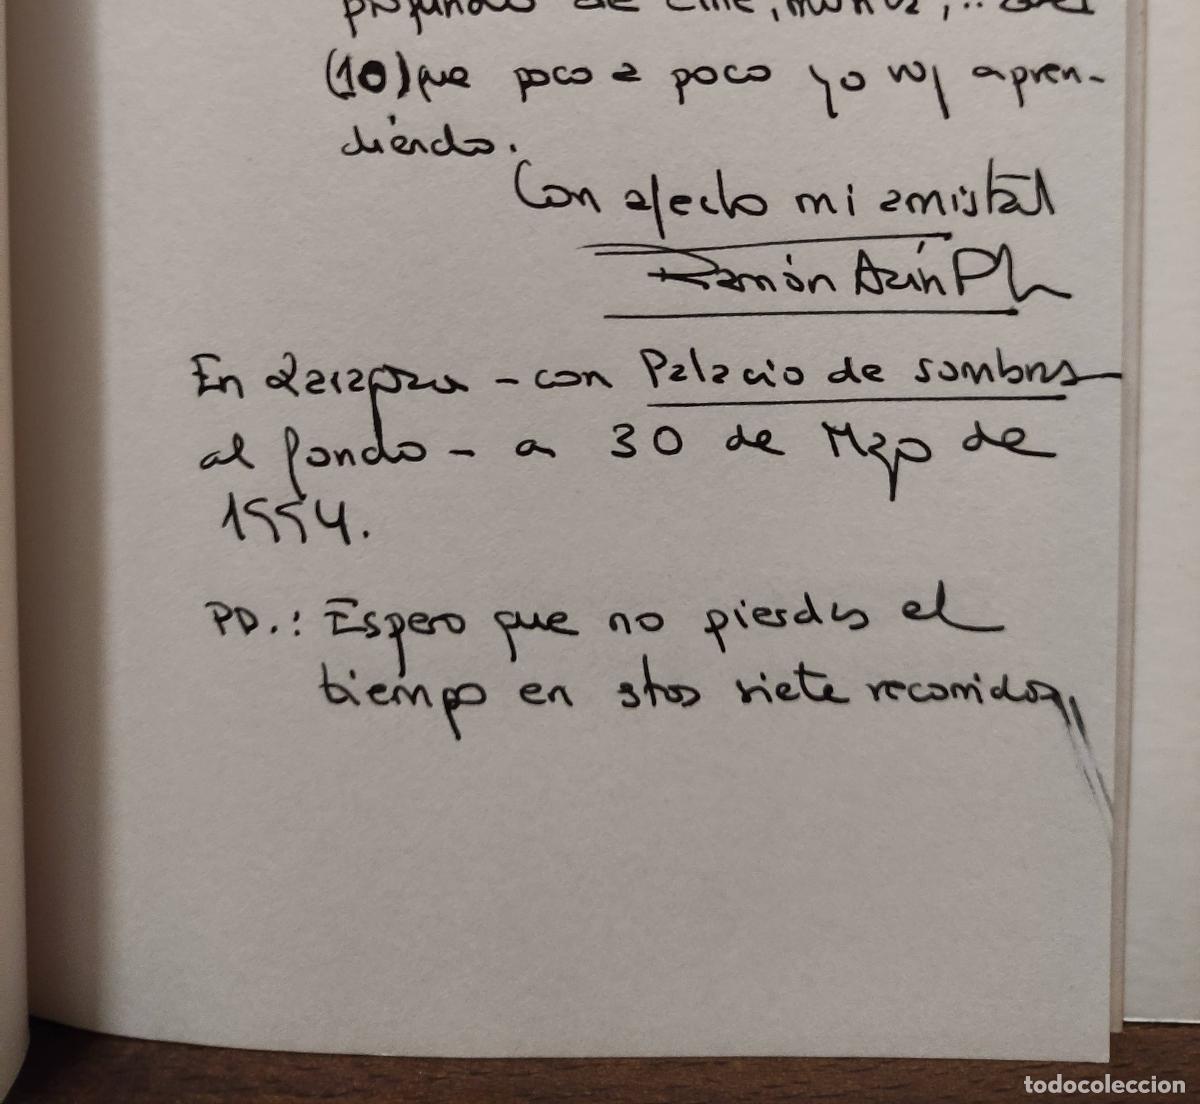 profundo de cine,
(10) que poco a poco yo voy apren-
diendo.
Con afecto mi amistad
Ramón Acín
En Zaragoza - con Palacio de sombras
al fondo - a 30 de Mzo de
1994.
PD.: Espero que no pierdas el
tiempo en stos siete recorridos,
todocoleccion